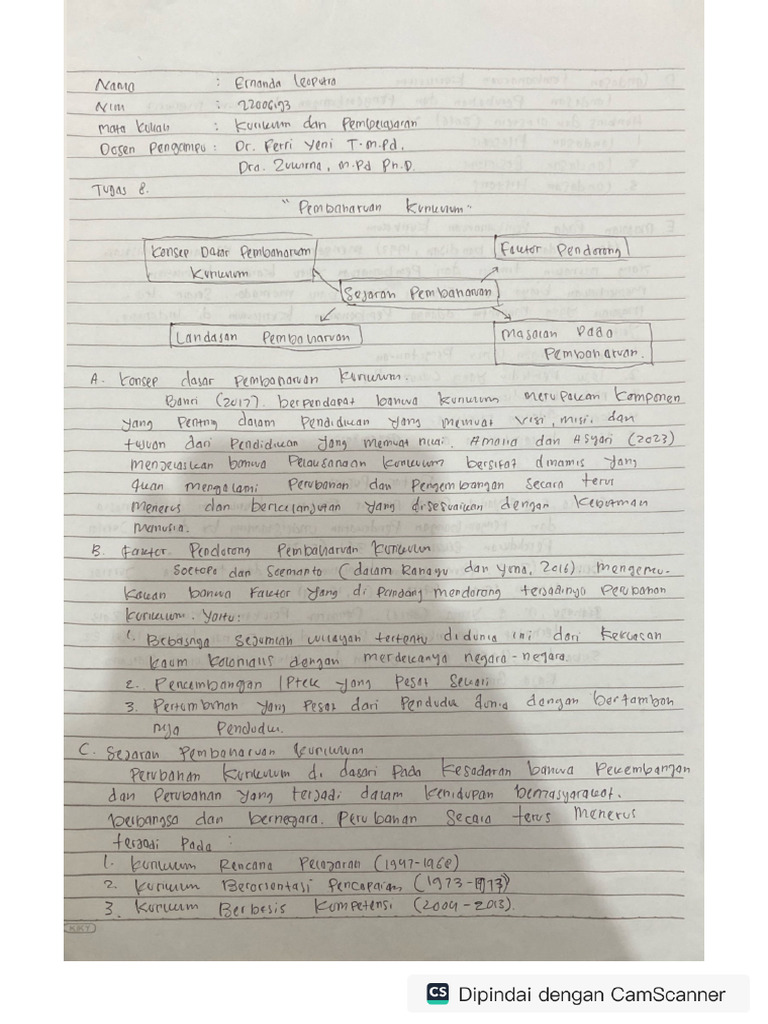 Nama : Ernanda Leoputra
NIM : 22006193
Mata Kuliah : Kurikulum dan Pembelajaran
Dosen Pengampu : Dr. Ferri Yeni T. M.Pd,
Dra. Zuwirna, M.Pd Ph.D.
Tugas 8.
"Pembaharuan Kurikulum"
Konsep Dasar Pembaharuan Kurikulum
Faktor Pendorong
Sejarah Pembaharuan
Landasan Pembaharuan
Masalah Pada Pembaharuan.
A. Konsep dasar Pembaharuan Kurikulum.
Bahri (2017) berpendapat bahwa kurikulum merupakan komponen
yang Penting dalam Pendidikan yang memuat visi, misi, dan
tujuan dari Pendidikan yang memuat nilai. Amalia dan Asyari (2023)
menjelaskan bahwa Pelaksanaan kurikulum bersifat dinamis yang
akan mengalami Perubahan dan Pengembangan Secara terus
menerus dan berkelanjutan yang disesuaikan dengan kebutuhan
manusia.
B. Faktor Pendorong Pembaharuan Kurikulum
Soetopo dan Soemanto (dalam Rahayu dan Yona, 2016) mengemu-
kakan bahwa Faktor yang di Pandang mendorong terjadinya Perubahan
kurikulum. Yaitu:
1. Bebasnya Sejumlah wilayah tertentu didunia ini dari Kekuasan
kaum kolonialis dengan merdekanya negara-negara.
2. Pencembangan IPtek yang Pesat Sekali
3. Pertumbuhan yang Pesat dari Penduduk dunia dengan bertambah
nya Penduduk.
C. Sejarah Pembaharuan kurikulum
Perubahan Kurikulum di dasari Pada Kesadaran bahwa Pekembangan
dan Perubahan yang terjadi dalam kehidupan bermasyarakat.
berbangsa dan bernegara. Perubahan Secara terus menerus
terjadi Pada :
1. Kurikulum Rencana Pelajaran (1947-1968)
2. Kurikulum Berorientasi Pencapaian (1973-1973)
3. Kurikulum Berbasis Kompetensi (2004-2013).
KKY
CS Dipindai dengan CamScanner